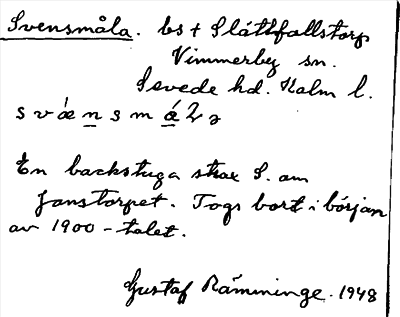 Svensmåla. bs t Slättfallstorp
Vimmerby sn.
Sevede hd. Kalm l.
svǽnsmǻlə
En backstuga strax S. om
Janstorpet. Togs bort i början
av 1900-talet.
Gustaf Rämninge. 1948